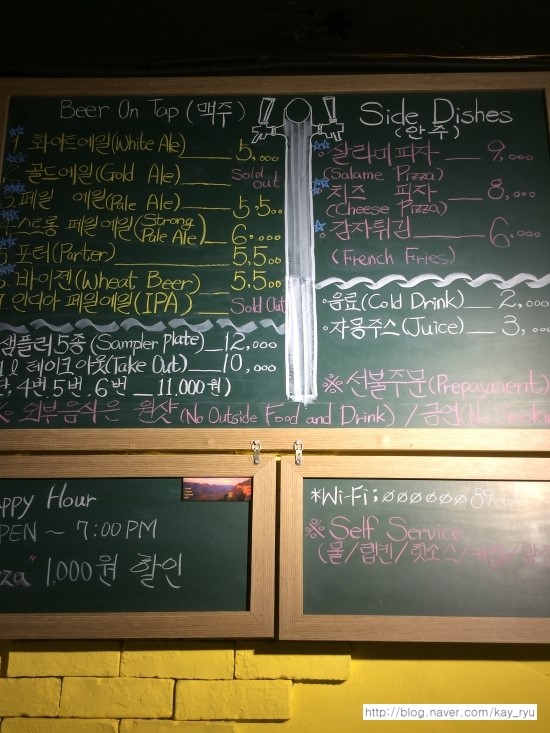 Beer On Tap (맥주)
1 화이트에일(White Ale) 5,000
골드에일(Gold Ale) Sold out
페일 에일(Pale Ale) 5,500
스트롱 페일에일(Strong Pale Ale) 6,000
5 포터(Parter) 5,500
바이젠(Wheat Beer) 5,500
7 인디아 페일에일(IPA) Sold Out
샘플러5종(Sampler plate) 12,000
1ℓ 테이크아웃(Take Out) 10,000
단, 4번. 5번. 6번 11.000원)
※ 외부음식은 (No Outside Food and Drink) / 금연
Side Dishes
(안주)
살라미피자 9,000
(Salame Pizza)
치즈 피자 8,000
(Cheese Pizza)
감자튀김 6,000
(French Fries)
음료(Cold Drink) 2,000
쟈몽주스(Juice) 3,
※선불주문(Prepayment)
ppy Hour
PEN ~ 7:00 PM
za" 1,000원 할인
*Wi-Fi;
※Self Service
(물/랩킨/핫소스/
http://blog.naver.com/kay_ryu